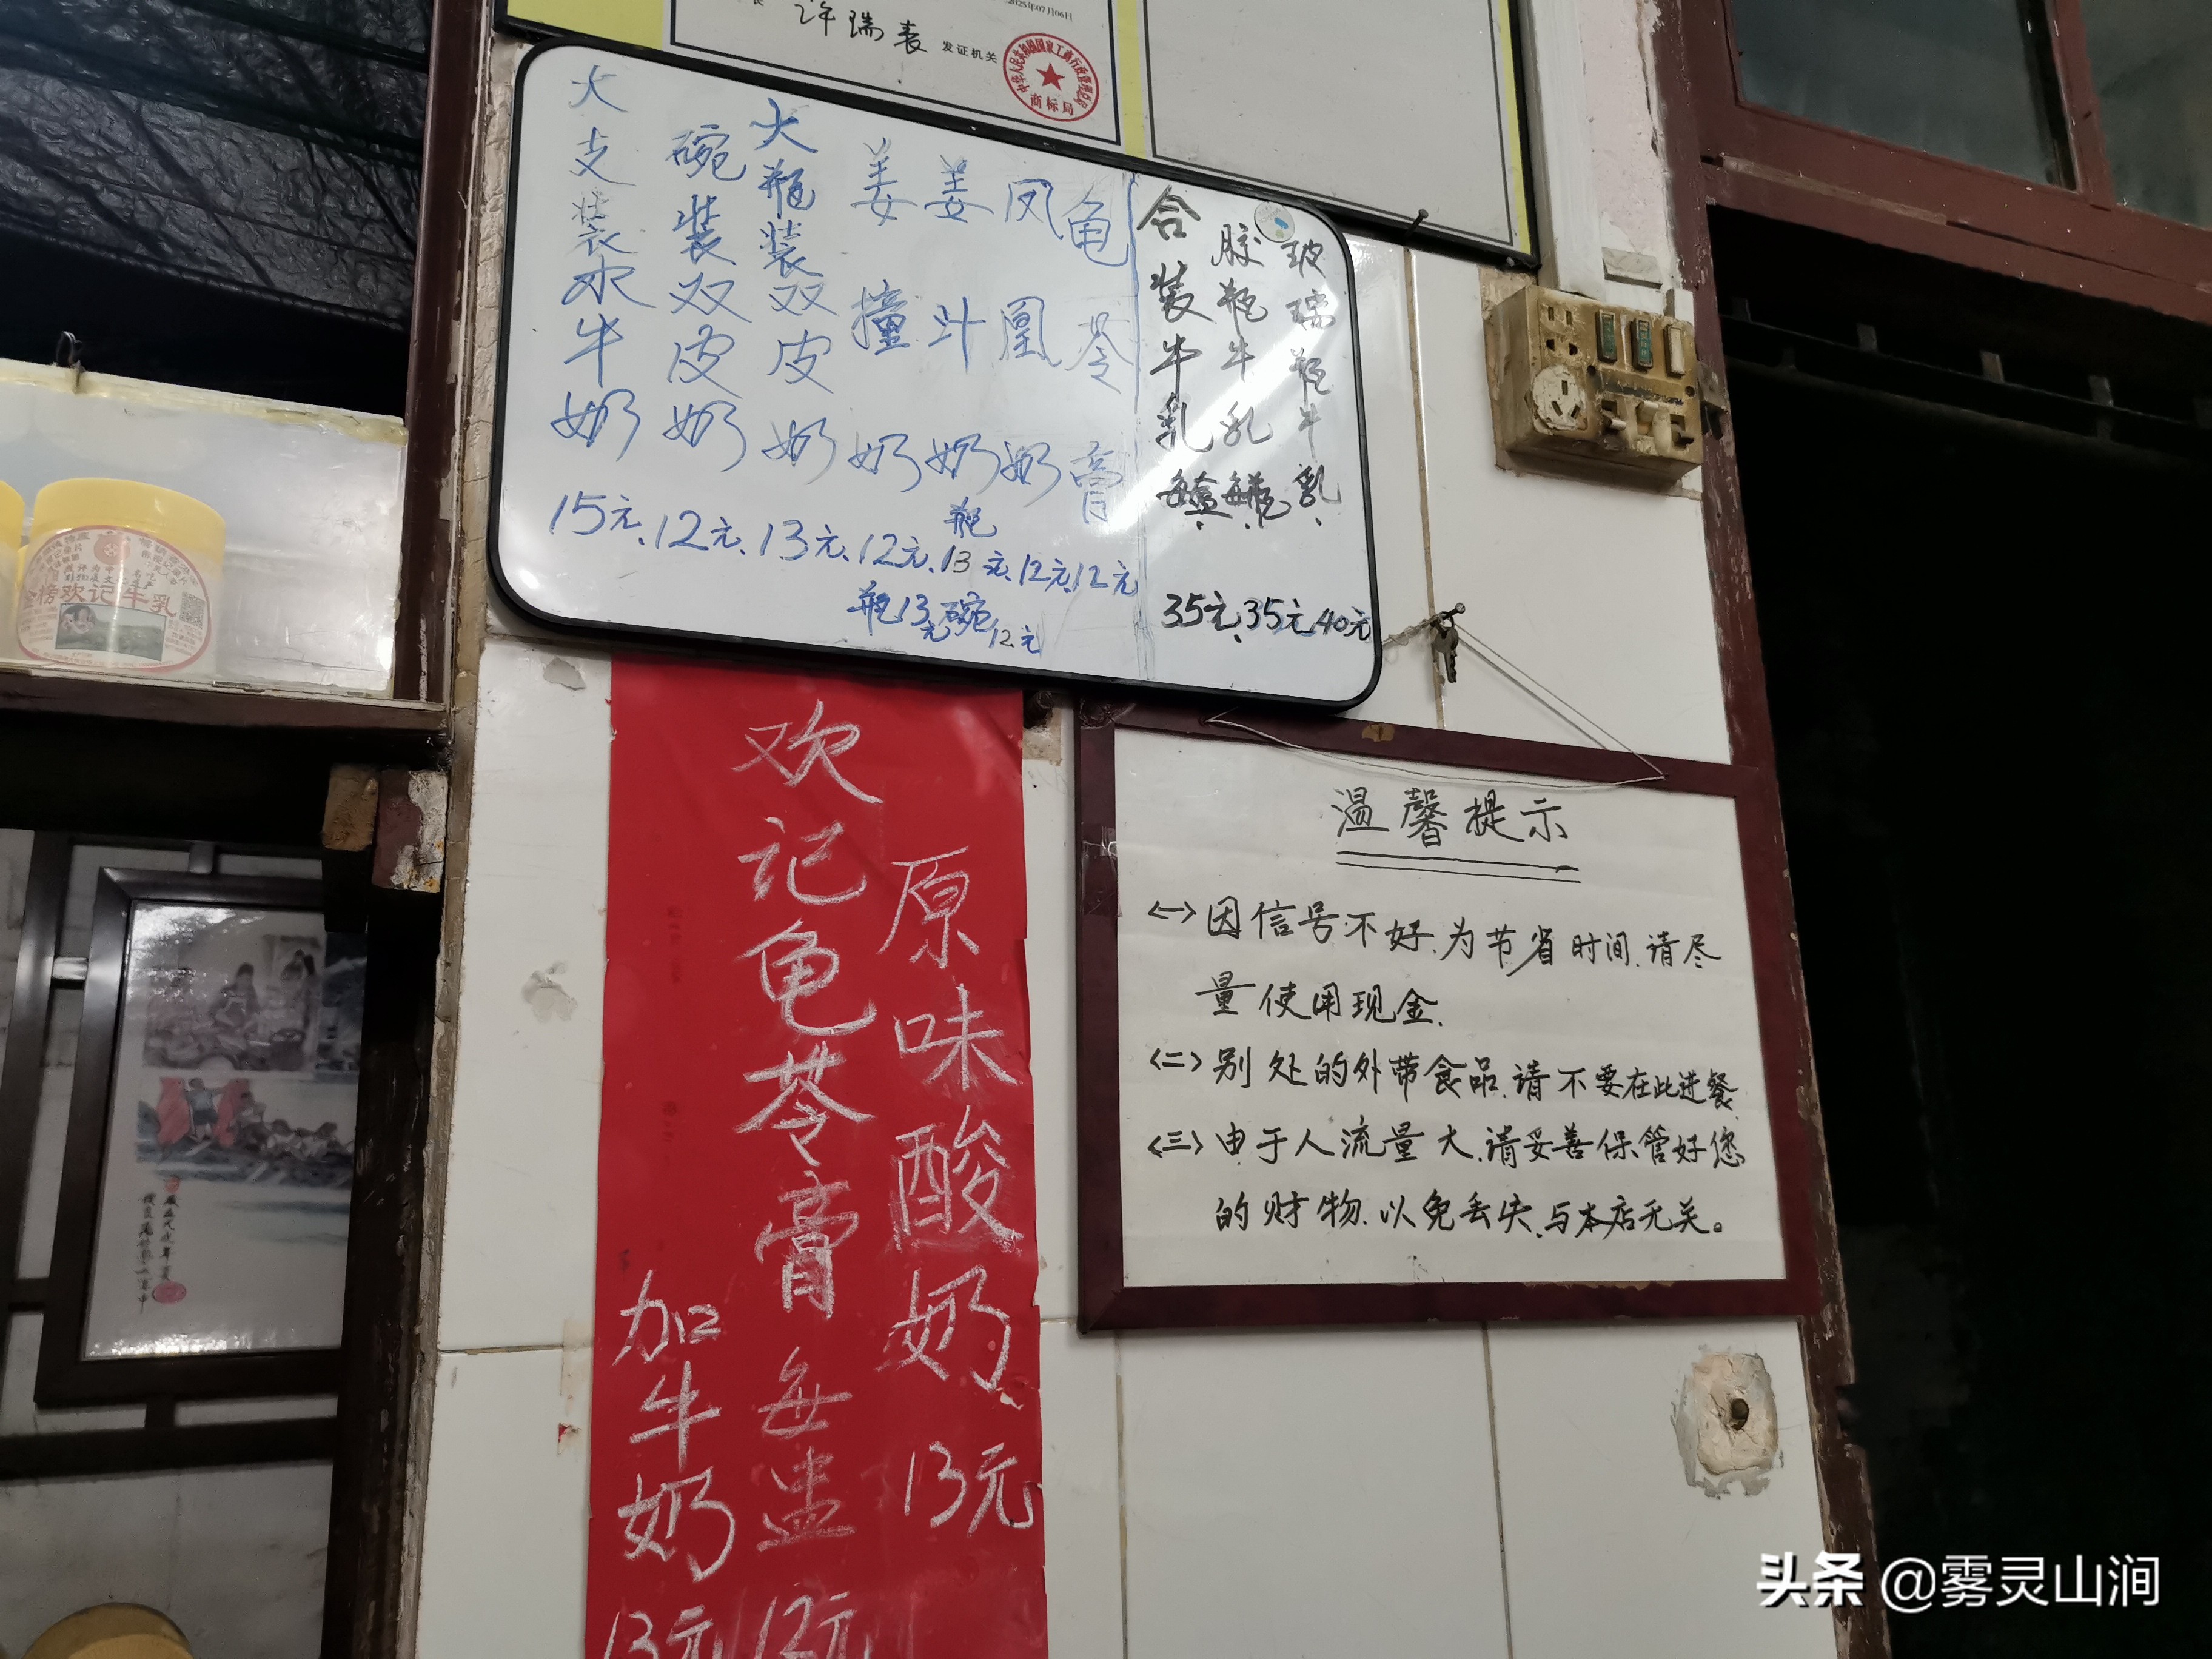 2025年07月06日
许瑞表
发证机关
中华人民共和国国家工商行政管理总局
商标局
大支装水牛奶
15元、
碗装双皮奶
12元、
大瓶装双皮奶
13元、
姜撞奶
12元、
瓶13元碗12元
姜汁奶
瓶
13元、
凤凰奶
12元、
龟苓膏
12元
合装牛乳每盒、
35元、
胶瓶牛乳每瓶、
35元
玻璃瓶牛乳、
40元
欢记牛乳
原味酸奶、13元
欢记龟苓膏每盅12元
加牛奶13元
温馨提示
<一>因信号不好.为节省时间.请尽
量使用现金.
<二>别处的外带食品.请不要在此进餐.
<三>由于人流量大.请妥善保管好您
的财物.以免丢失.与本店无关。
头条 @雾灵山涧